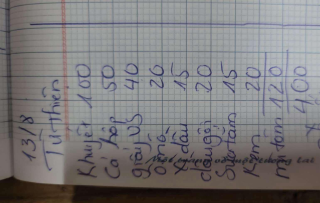 13/8
Từ thiện
Khuyết 100
Cá hộp 50
giấy VS 40
ô mô 20
X. dầu 15
dầu gội 20
Sữa tắm 15
Kem 20
mì tôm 120
400